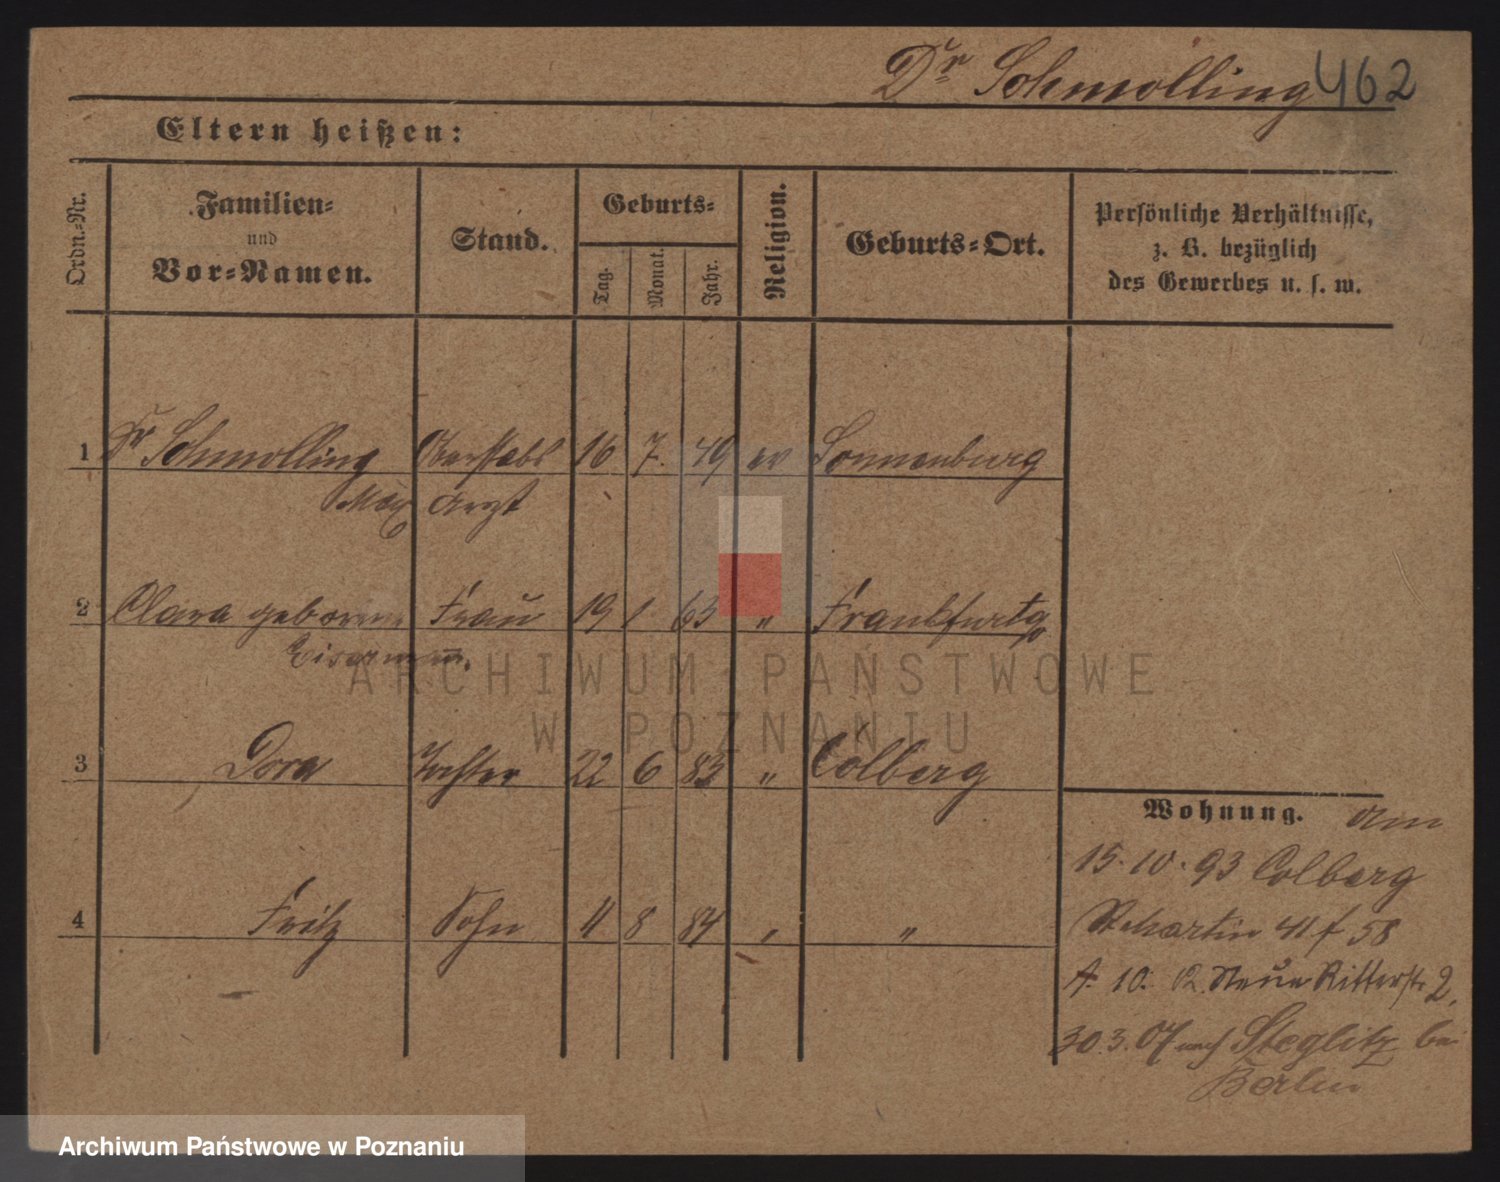 Dr Schmolling 462
Eltern heißen:
Ordn.-Nr.
Familien-
und
Vor-Namen.
Stand.
Geburts-
Tag.
Monat.
Jahr.
Religion.
Geburts-Ort.
Persönliche Verhältnisse,
z. B. bezüglich
des Gewerbes u. s. w.
1 Dr Schmolling Oberstabs 16 7. 49 ev Sonnenburg
Max Arzt
2 Clara geborene Frau 19 1 63 " Frankfurt
3 Dora Tochter 22 6 83 " Colberg
4 Fritz Sohn 4 8 84 " "
Wohnung. am
15. 10. 93 Colberg
St Martin 41 f 58
A. 10. R. Neue Ritterstr 2.
30.3.07 nach Steglitz bei
Berlin
ARCHIWUM PAŃSTWOWE
W POZNANIU
Archiwum Państwowe w Poznaniu